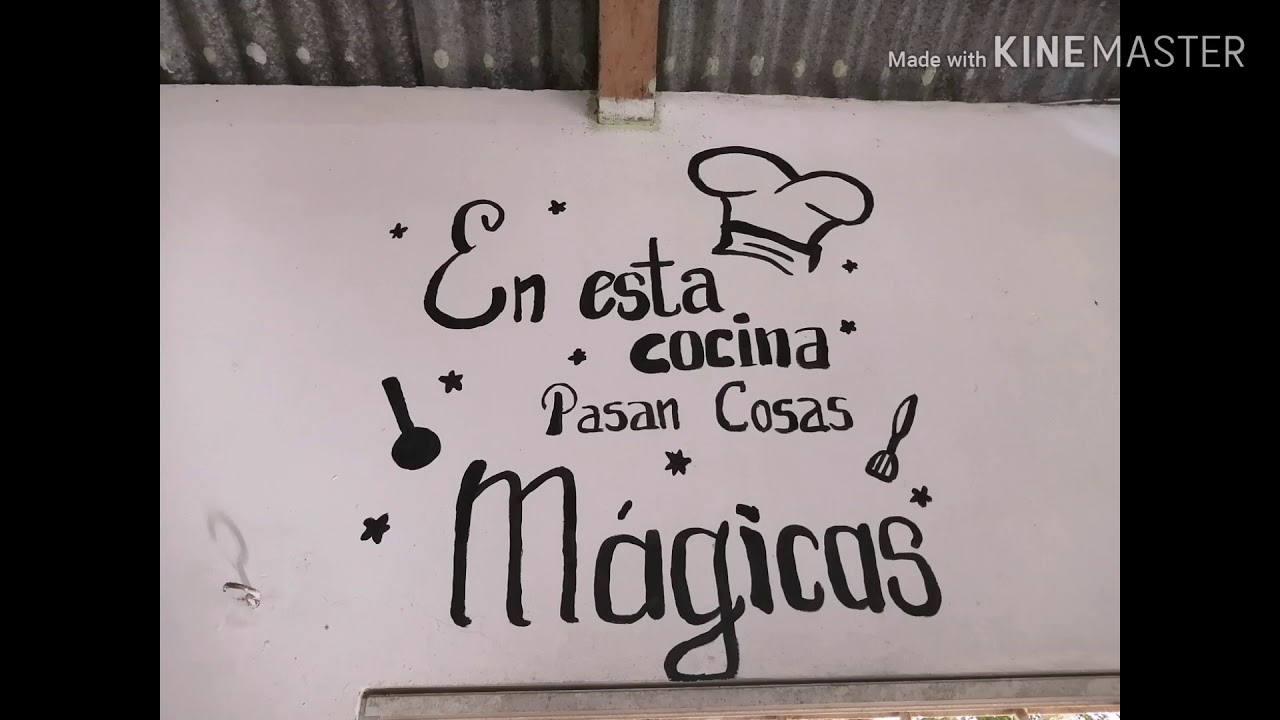 Made with KINEMASTER
En esta
cocina
Pasan Cosas
Mágicas